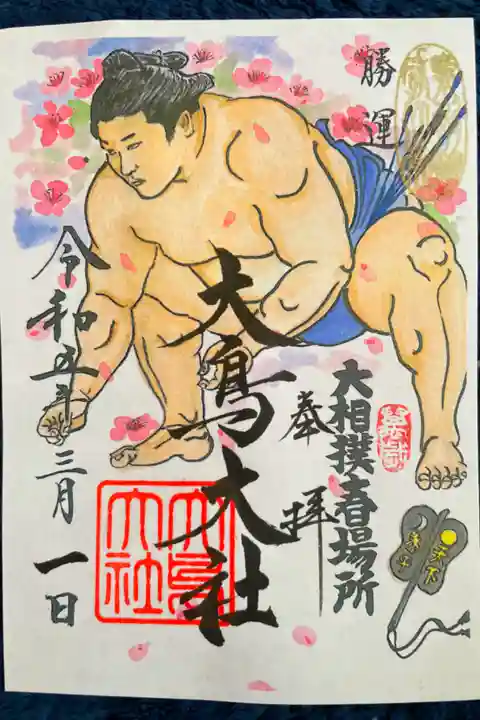 勝運
大相撲春場所
奉拝
大鳥大社
大鳥大社
令和五年三月一日
天下泰平